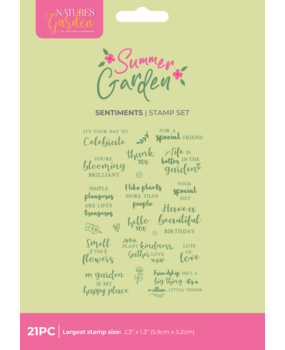 NATURE'S
Garden
Summer
Garden
SENTIMENTS | STAMP SET
IT'S YOUR DAY TO
Celebrate
FOR A
special FRIEND
thank
YOU
Life is
better IN THE
garden
YOU'RE
blooming
BRILLIANT
SIMPLE
pleasures
ARE LIFE'S
treasures
I like plants
MORE THAN
people
YOUR
special
DAY
hello
YOU
Have a
beautiful
BIRTHDAY
Smell
THE
flowers
PLANT kindness,
Gather LOVE
LOTS
OF
love
my garden
IS MY
happy place
Friendship ISN'T A
big thing - it's a
million LITTLE THINGS
21PC
Largest stamp size: 2.3" x 1.3" (5.9cm x 3.2cm)